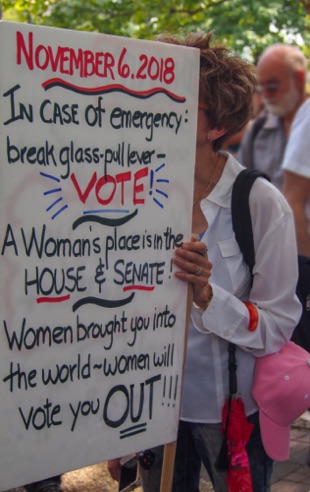 NOVEMBER 6, 2018
IN CASE of emergency:
break glass-pull lever-
VOTE!
A Woman's place is in the
HOUSE & SENATE!
Women brought you into
the world~women will
vote you OUT!!!